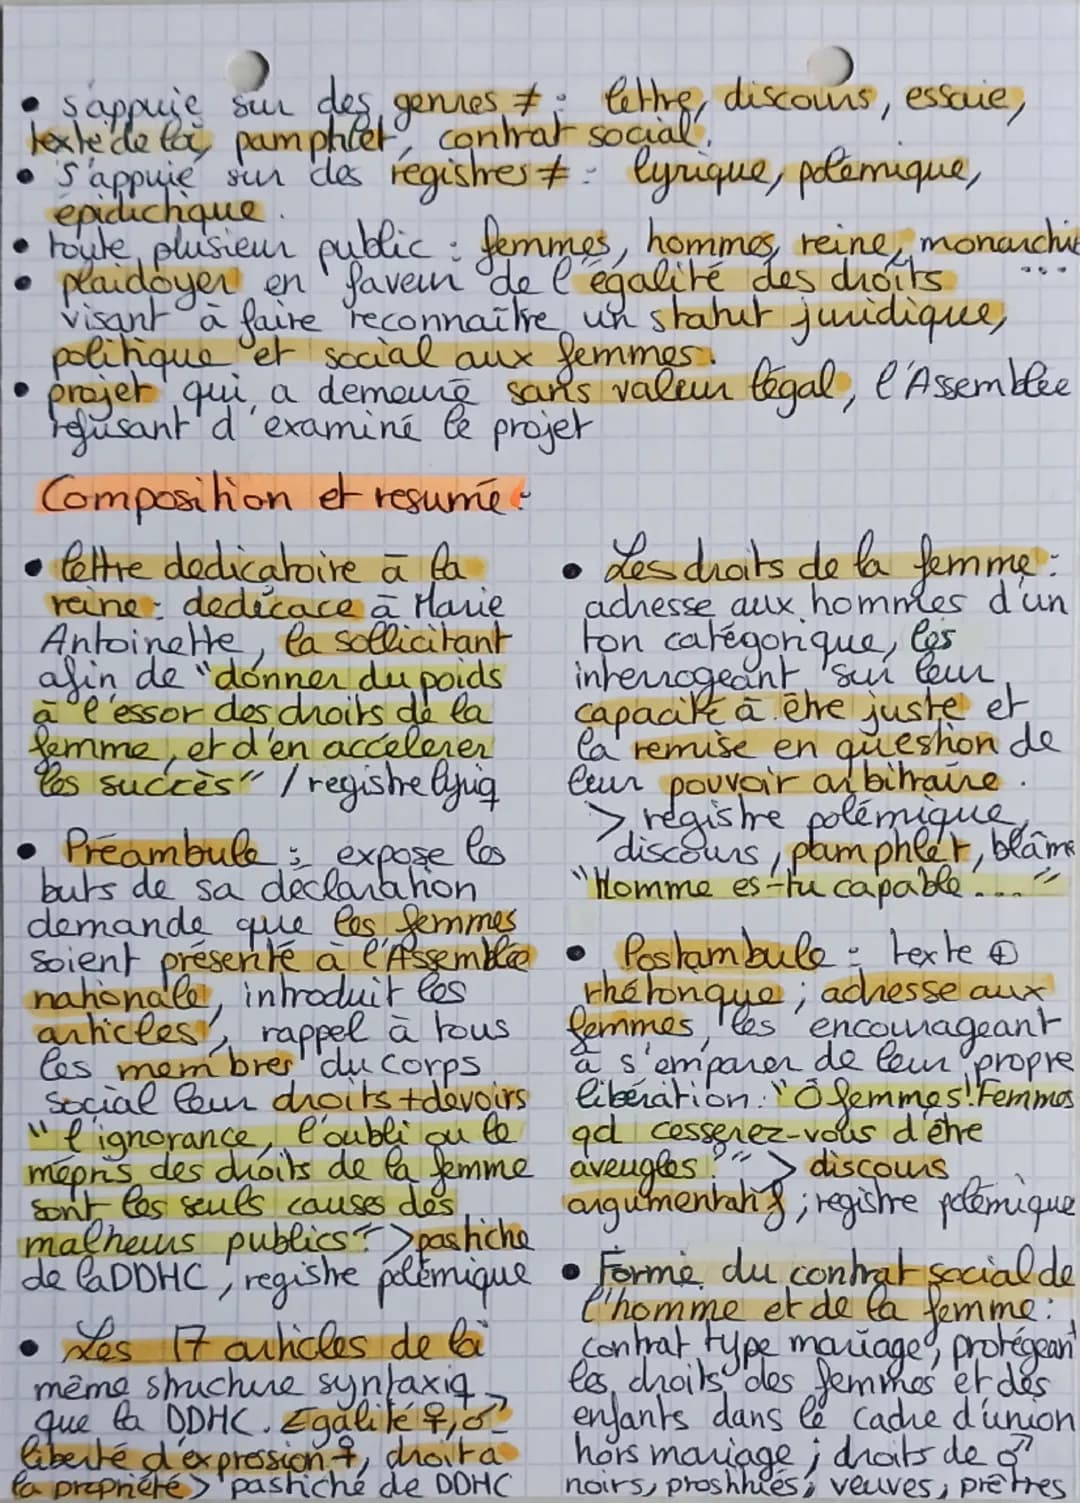 • s'appuie sur des genres ≠ : lettre, discours, essaie,
texte de loi, pamphlet, contrat social.
• s'appuie sur des régistres ≠ : lyrique, polémique,
épidictique.
• toute plusieur public : femmes, hommes, reine, monarchie
• plaidoyer en faveur de l'égalité des droits ...
visant à faire reconnaître un statut juridique,
politique et social aux femmes.
• projet qui a demeuré sans valeur légal, l'Assemblée
refusant d'examiné le projet
Composition et resumé :
• lettre dedicatoire à la
reine : dedicace à Marie
Antoinette, la sollicitant
afin de "donner du poids
à l'essor des droits de la
femme, et d'en accélerer
les succès" / registre lyriq
• Préambule : expose les
buts de sa déclaration
demande que les femmes
soient présenté à l'Assemblée
nationale, introduit les
articles, rappel à tous
les membres du corps
social leur droits + devoirs
"l'ignorance, l'oubli ou le
mépris des droits de la femme
sont les seuls causes des
malheurs publics" > pastiche
de la DDHC, registre polémique
• Les 17 articles de loi
même structure syntaxiq
que la DDHC. Egalité ♀,♂
liberté d'expression ♀, droit à
la propriété > pastiche de DDHC
• Les droits de la femme :
adresse aux hommes d'un
ton catégorique, les
interrogeant sur leur
capacité à être juste et
la remise en question de
leur pouvoir arbitraire.
> régistre polémique,
discours, pamphlet, blâme
"Homme es-tu capable ..."
• Postambule : texte ⊕
rhétorique ; adresse aux
femmes, les encourageant
à s'emparer de leur propre
libération : "Ô femmes! Femmes
qd cesserez-vous d'être
aveugles ?" > discours
argumentatif ; registre polémique
• Forme du contrat social de
l'homme et de la femme :
contrat type mariage, protégeant
les droits des femmes et des
enfants dans le cadre d'union
hors mariage ; droits de ♂
noirs, prostituées, veuves, prêtres